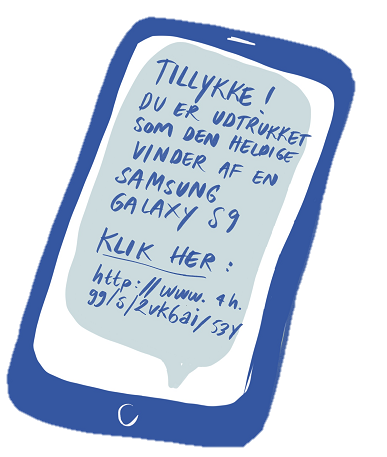 TILLYKKE!
DU ER UDTRUKKET
SOM DEN HELDIGE
VINDER AF EN
SAMSUNG
GALAXY S9
KLIK HER:
http://www.4h.
gg/s/2vk6ai/53Y